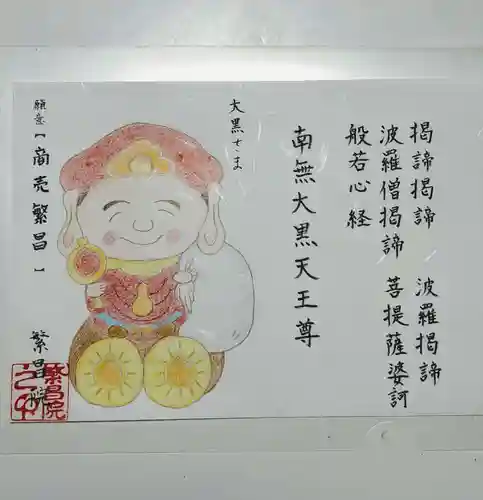 揭諦揭諦　波羅揭諦
波羅僧揭諦　菩提薩婆訶
般若心経
南無大黒天王尊
大黒さま
願意【商売繁昌】
繁昌院
繁昌院